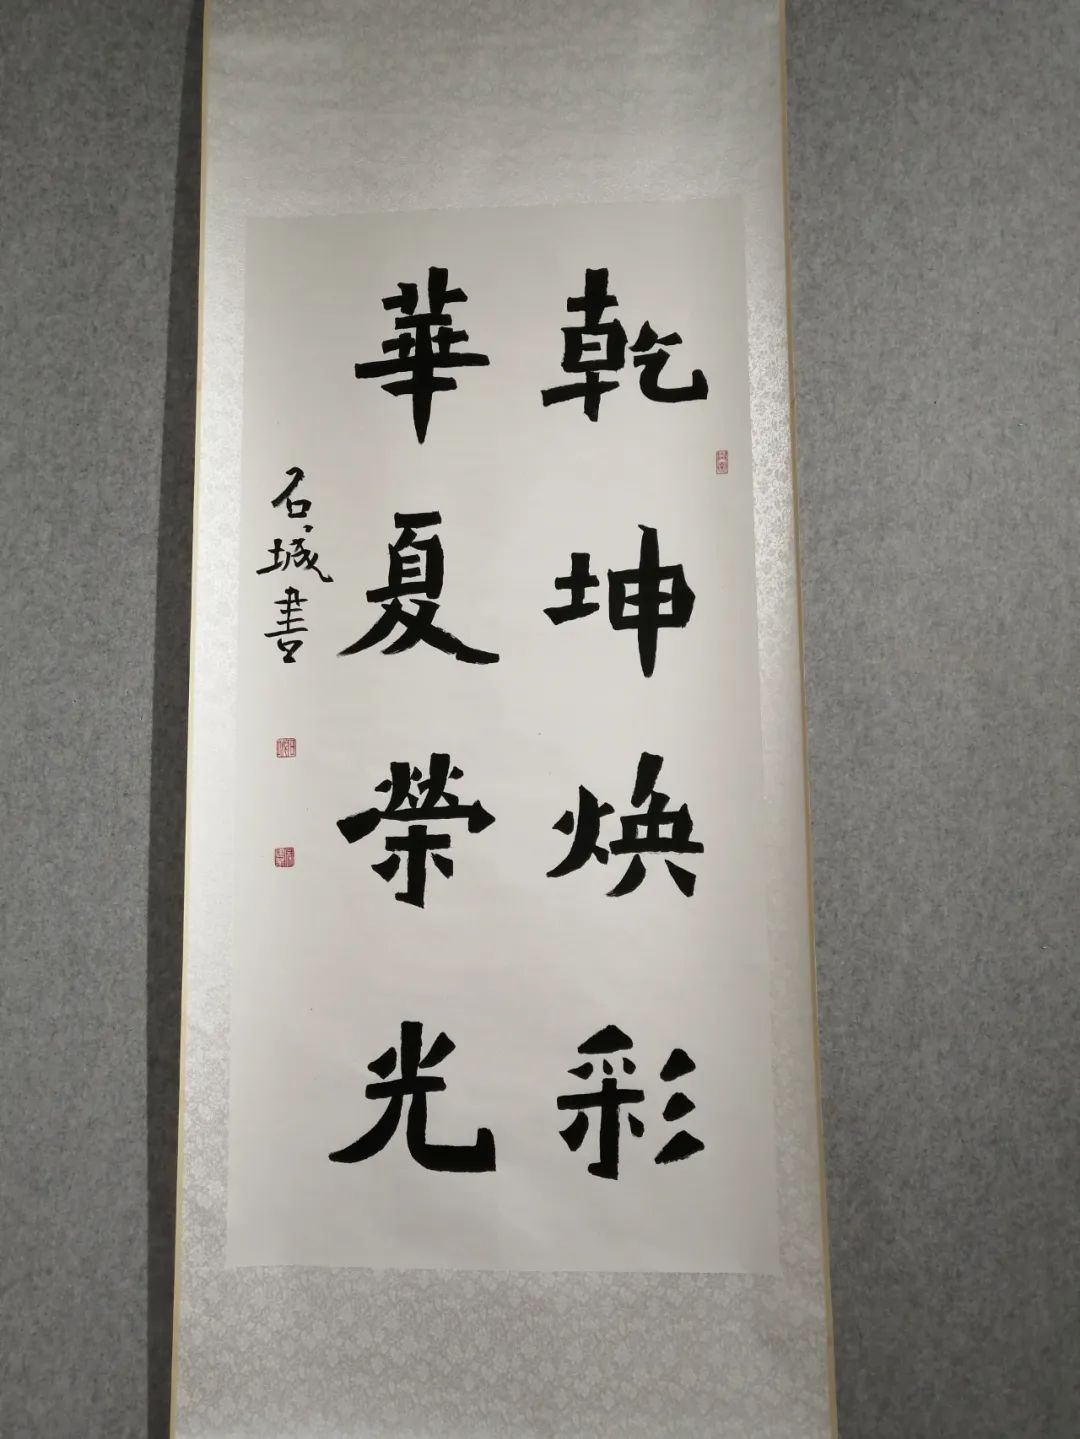 乾坤焕彩
華夏榮光
石城書